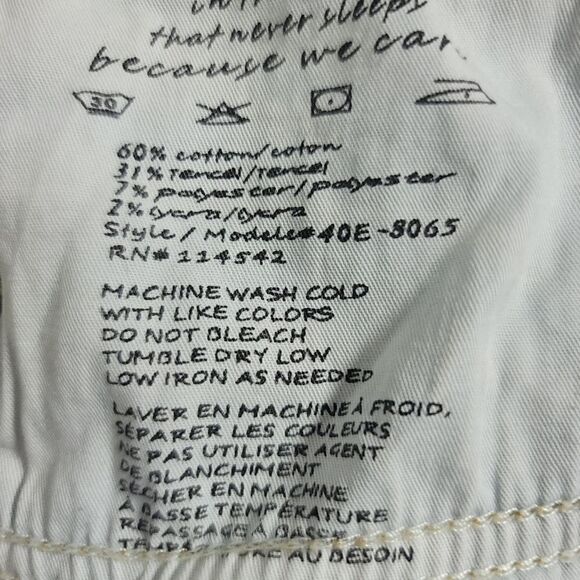 that never sleeps
because we
30
60% cotton/coton
31% Tencel/Tencel
7% polyester/polyester
2% Lycra/Lycra
Style / Modele# 40E-8065
RN# 114542
MACHINE WASH COLD
WITH LIKE COLORS
DO NOT BLEACH
TUMBLE DRY LOW
LOW IRON AS NEEDED
LAVER EN MACHINE À FROID,
SÉPARER LES COULEURS
NE PAS UTILISER AGENT
DE BLANCHIMENT
SÉCHER EN MACHINE
À BASSE TEMPÉRATURE
REPASSAGE À BASSE
AU BESOIN